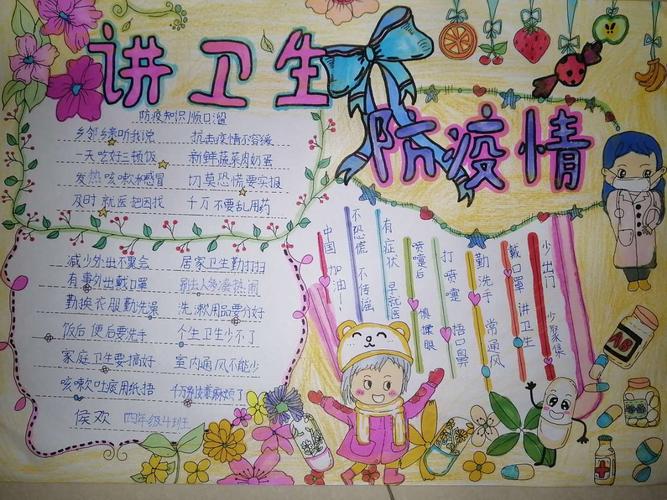 讲卫生
防疫情
防疫知识顺口溜
乡邻乡亲听我说 抗击疫情不容缓
一天吃好三顿饭 新鲜蔬菜肉奶蛋
发热咳嗽和感冒 切莫恐慌要实报
及时就医把因找 千万不要乱用药
减少外出不聚会 居家卫生勤打扫
有事外出戴口罩 别去人多凑热闹
勤换衣服勤洗澡 洗漱用品要分好
饭后便后要洗手 个生卫生少不了
家庭卫生要搞好 室内通风不能少
咳嗽吐痰用纸捂 千万别嫌麻烦了
侯欢 四年级4班
少出门 少聚集
戴口罩 讲卫生
勤洗手 常通风
打喷嚏 捂口鼻
喷嚏后 慎揉眼
有症状 早就医
不恐慌 不传谣
中国 加油！